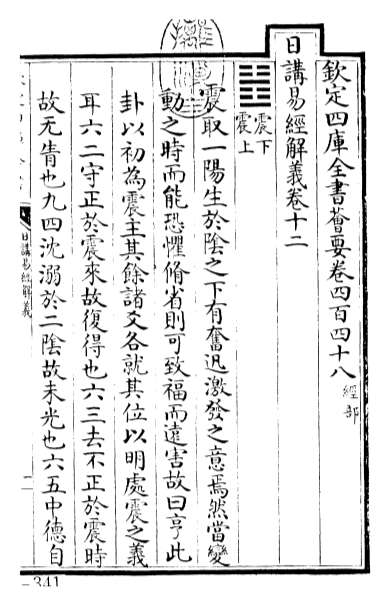 欽定四庫全書薈要卷四百四十八 經部
日講易經解義卷十二
震下
震上
震取一陽生於陰之下有奮迅激發之意焉然當變
動之時而能恐懼脩省則可致福而遠害故曰亨此
卦以初為震主其餘諸爻各就其位以明處震之義
耳六二守正於震來故復得也六三去不正於震時
故无眚也九四沈溺於二陰故未光也六五中德自
日講易經解義
一
-341